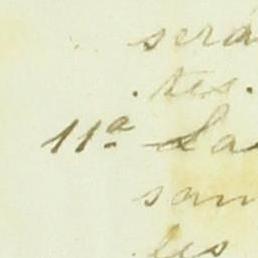 será
tes.
11ª La
son
les